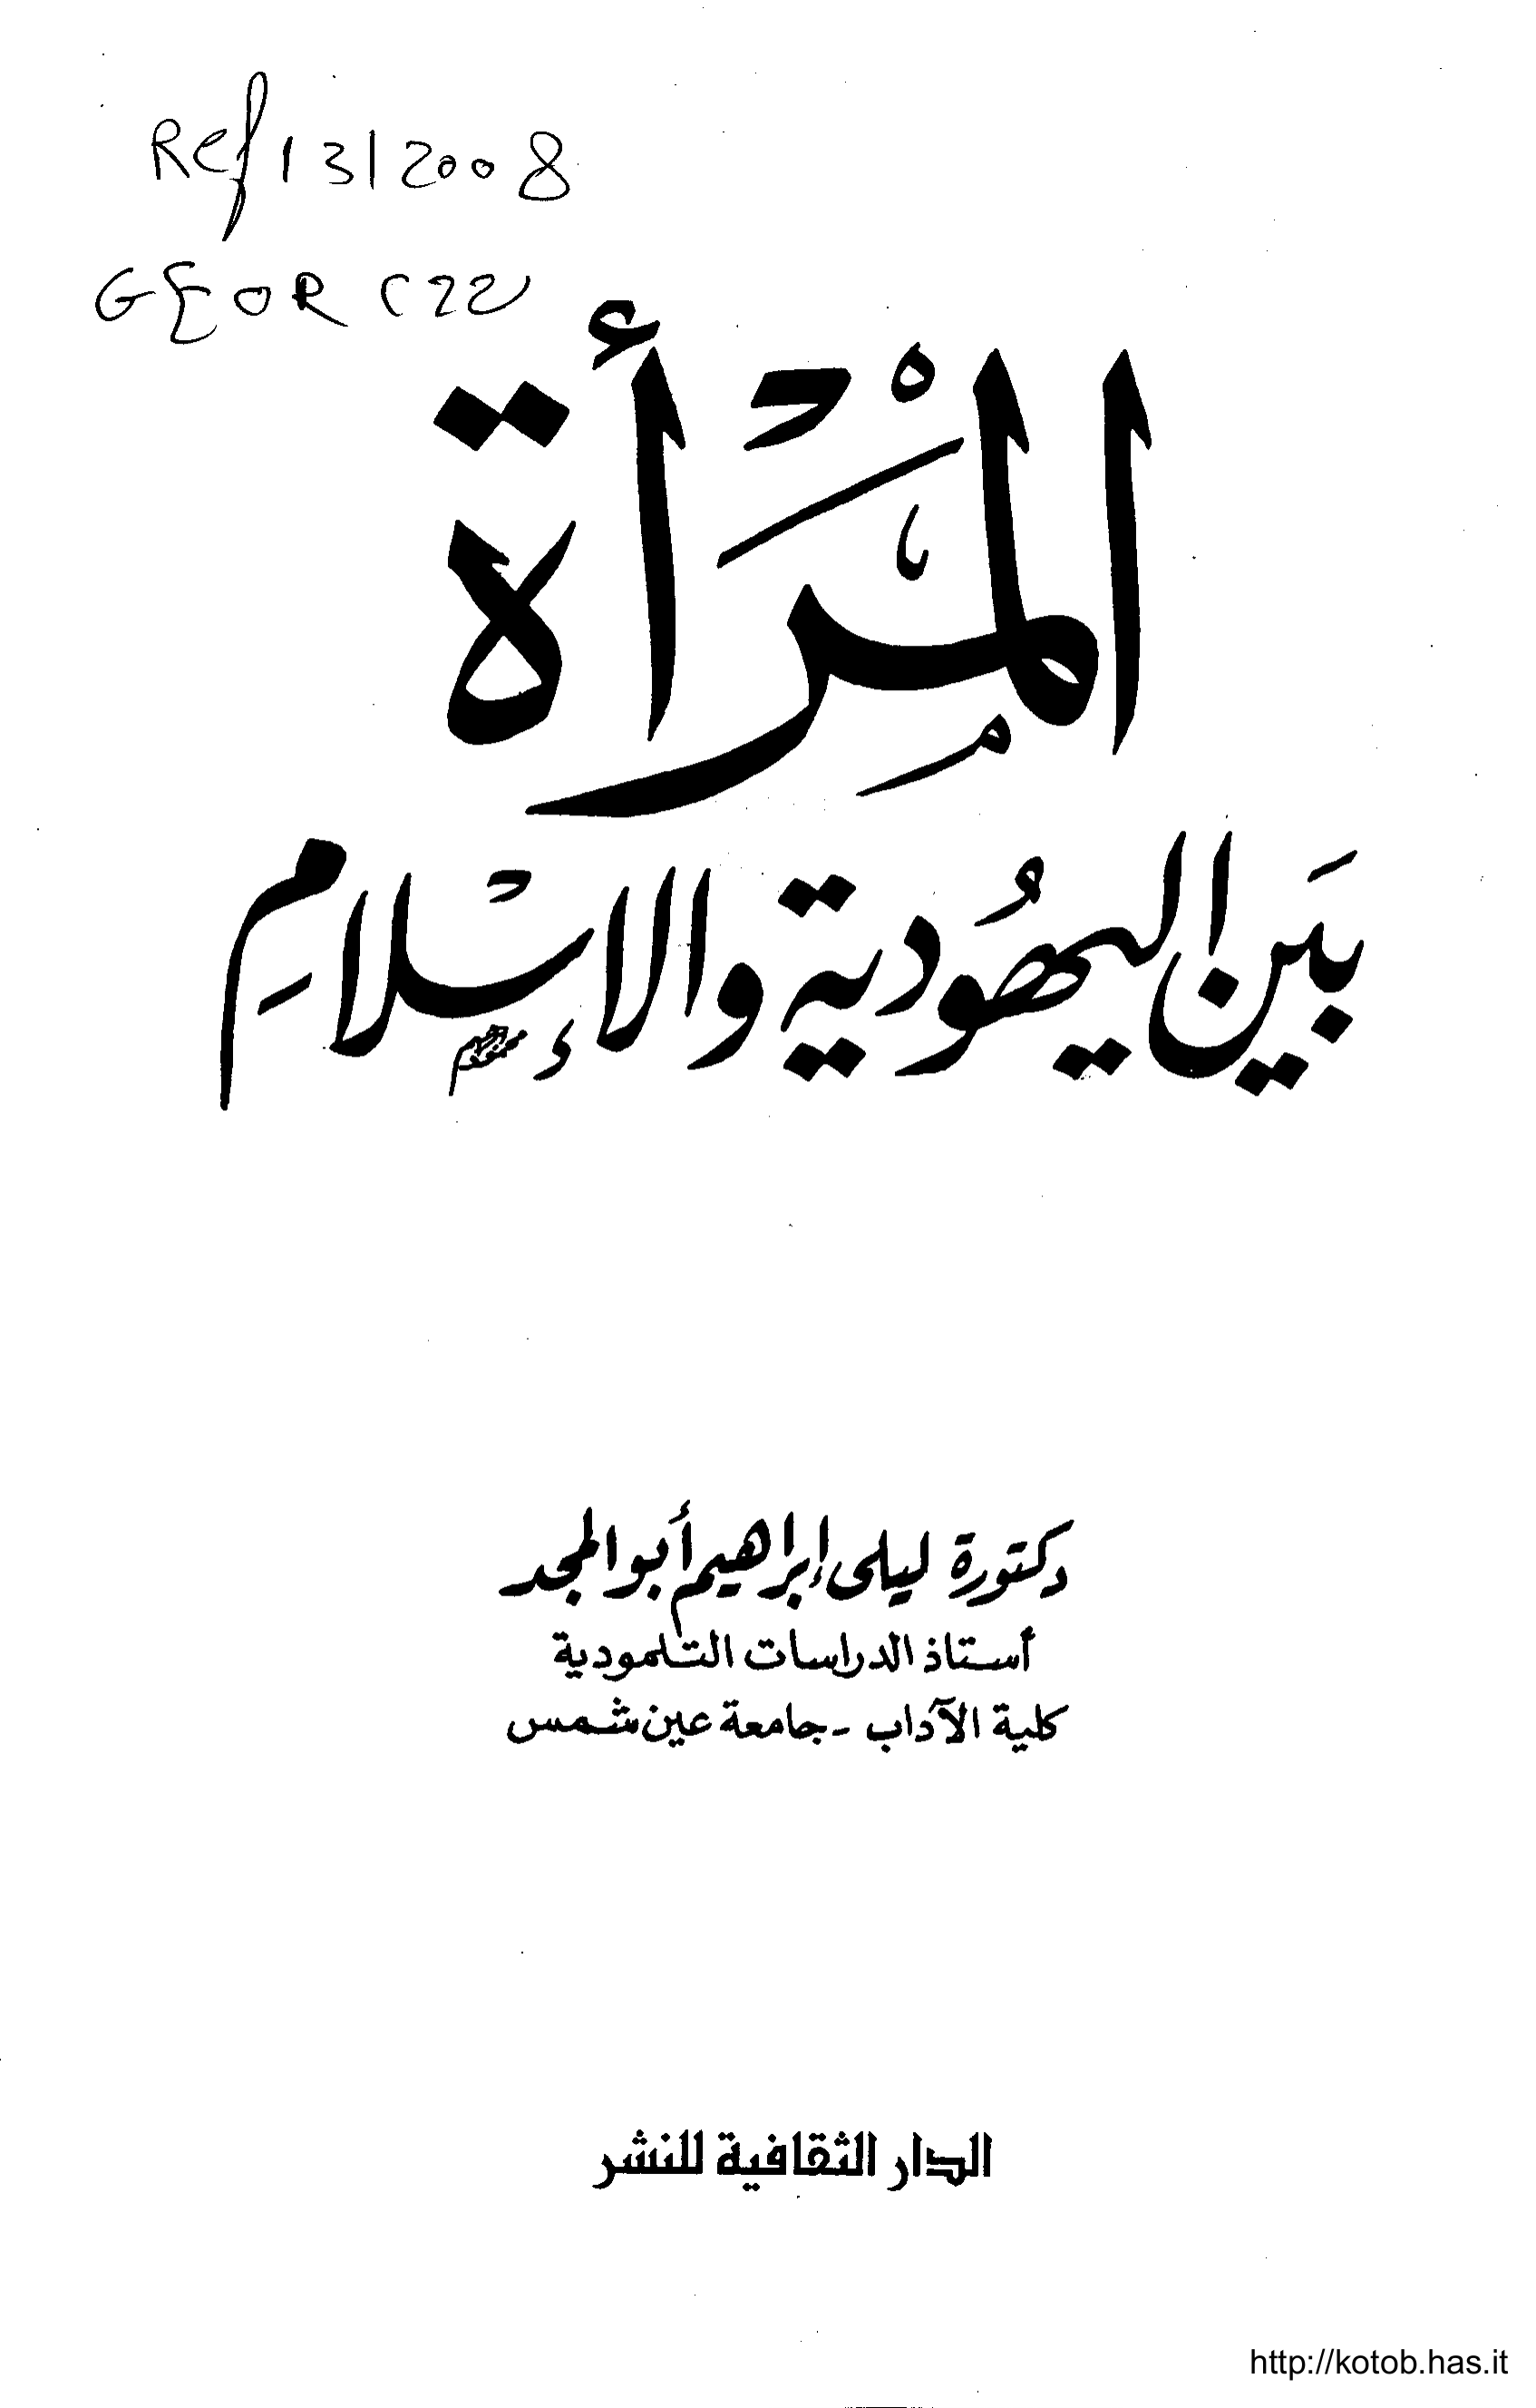 Ref 13/2008
المرأة
بين اليهودية والإسلام
دكتورة ليلى إبراهيم أبو المجد
أستاذ الدراسات التلمودية
كلية الآداب - جامعة عين شمس
الدار الثقافية للنشر
http://kotob.has.it